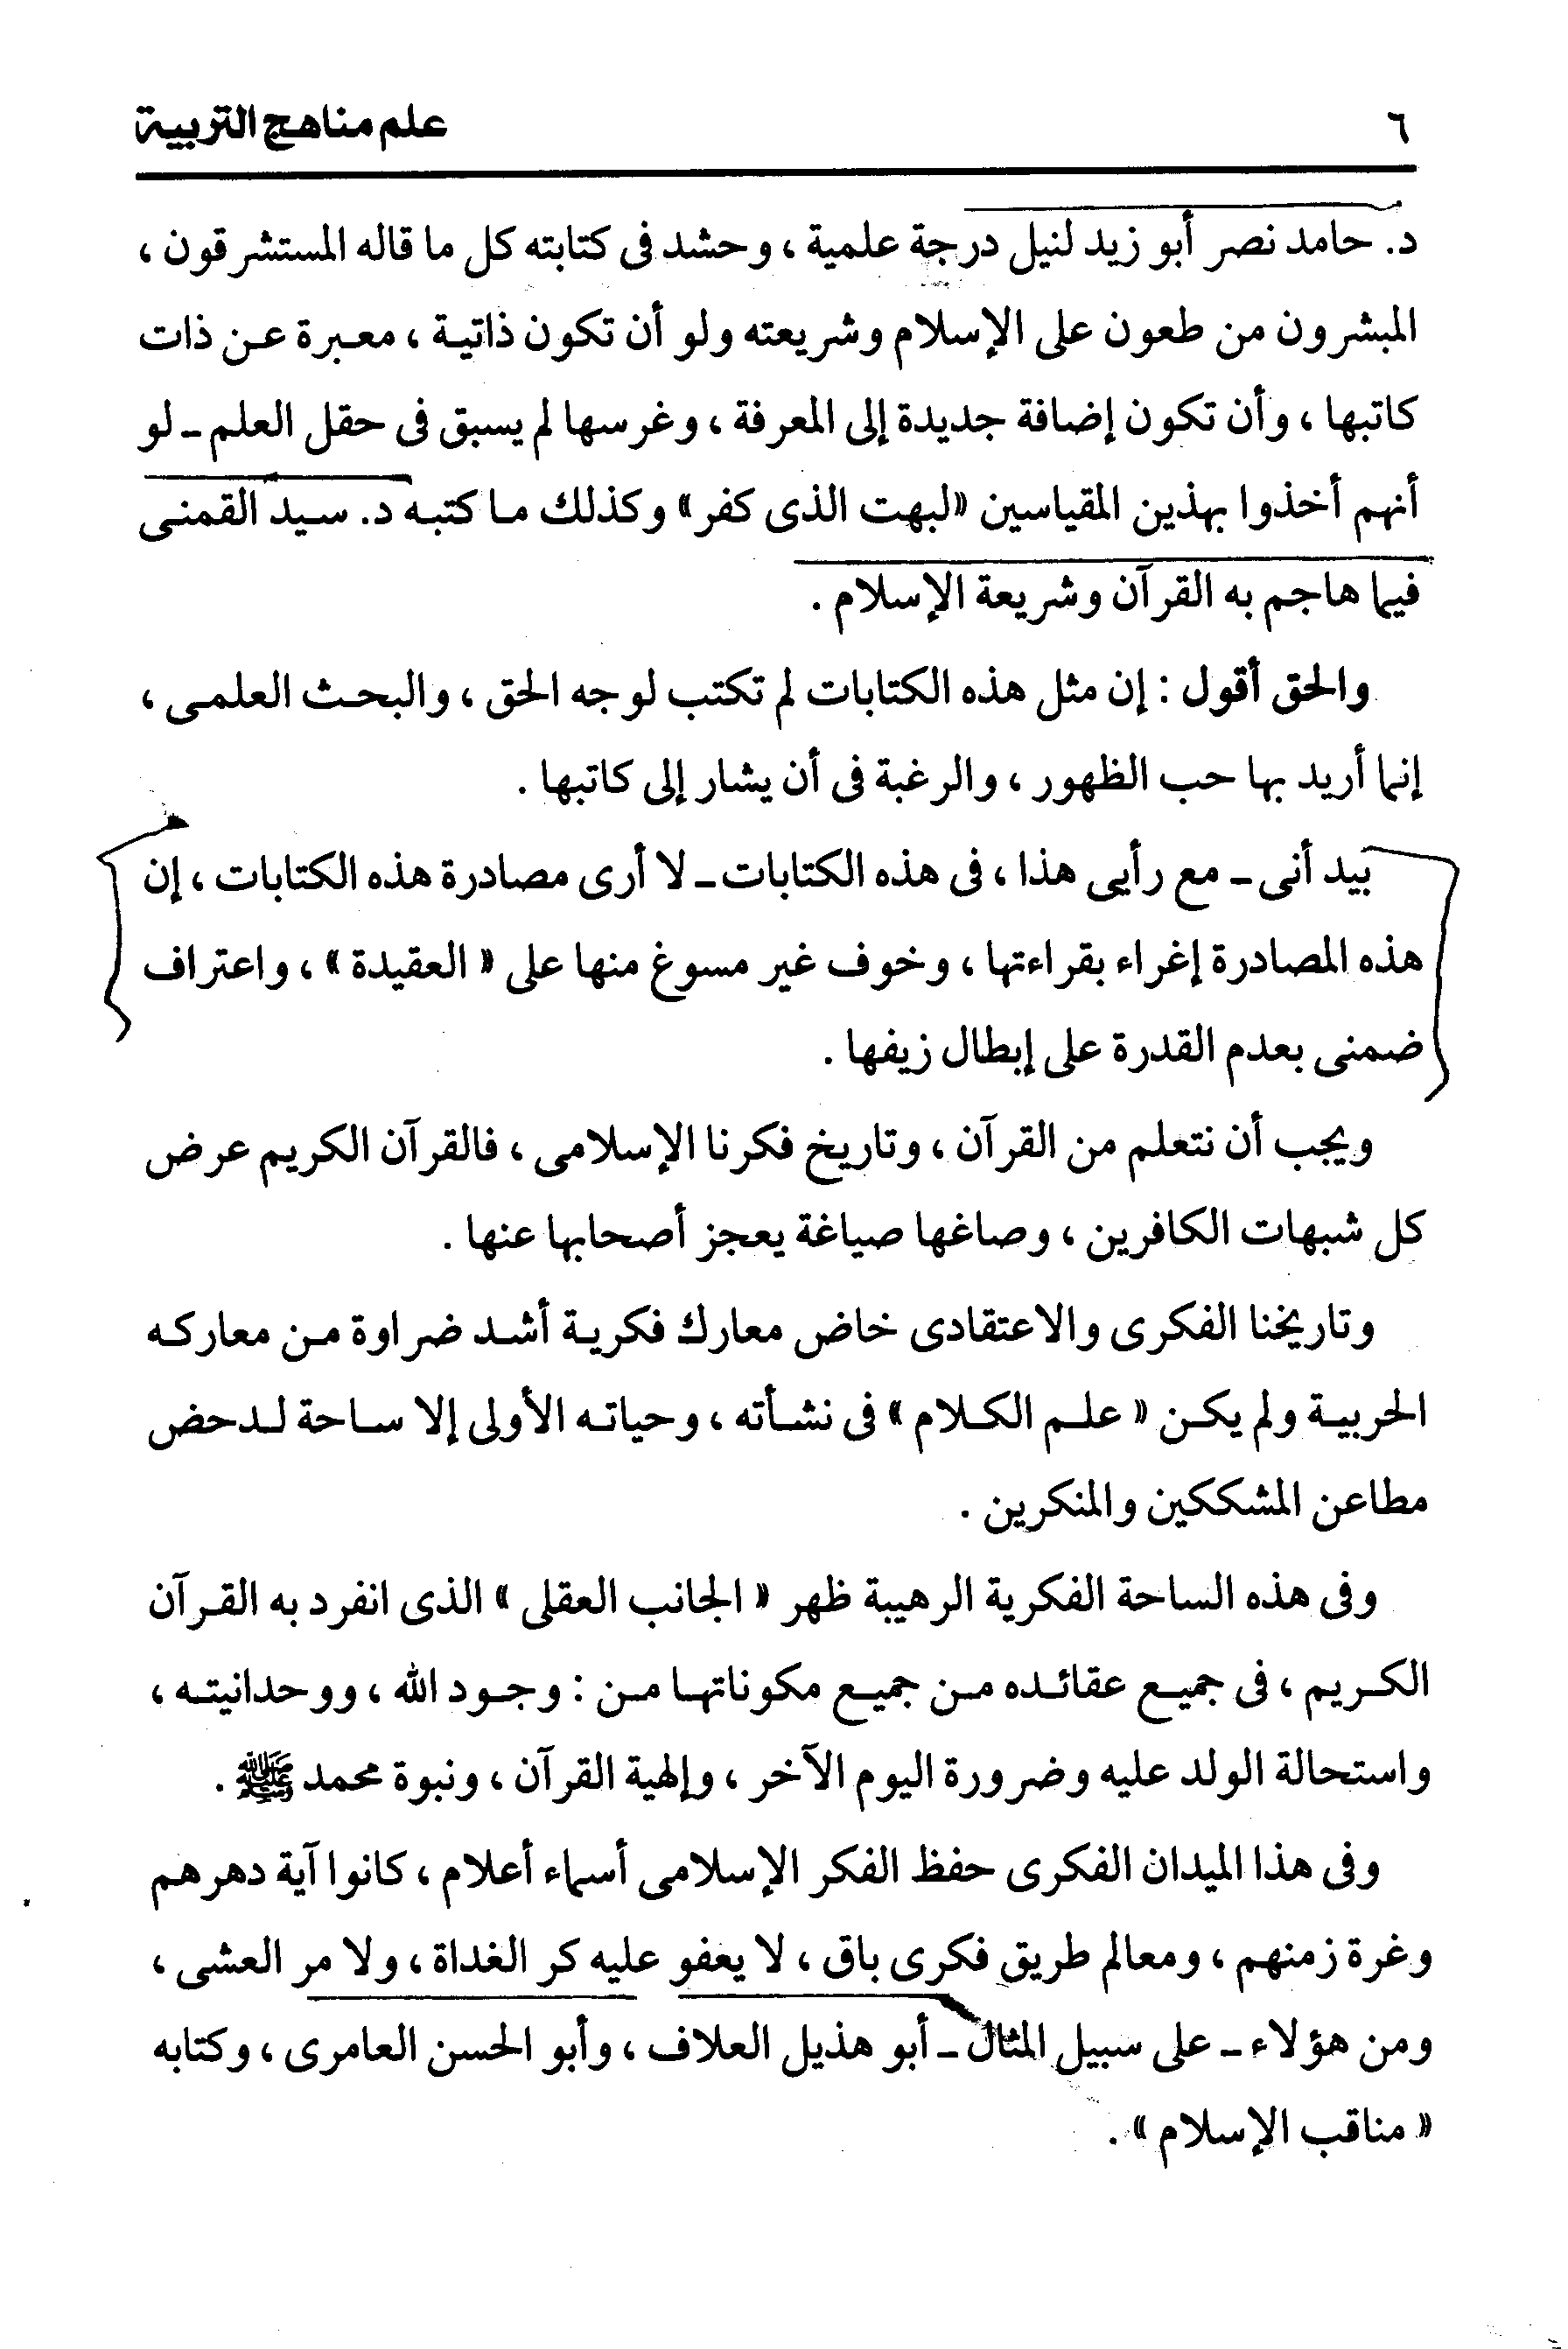 ٦
علم مناهج التربية
د. حامد نصر أبو زيد لنيل درجة علمية ، وحشد فى كتابته كل ما قاله المستشرقون ،
المبشرون من طعون على الإسلام وشريعته ولو أن تكون ذاتية ، معبرة عن ذات
كاتبها ، وأن تكون إضافة جديدة إلى المعرفة ، وغرسها لم يسبق فى حقل العلم ـ لو
أنهم أخذوا بهذين المقياسين «لبهت الذى كفر» وكذلك ما كتبه د. سيد القمنى
فيما هاجم به القرآن وشريعة الإسلام .
والحق أقول : إن مثل هذه الكتابات لم تكتب لوجه الحق ، والبحث العلمى ،
إنما أريد بها حب الظهور ، والرغبة فى أن يشار إلى كاتبها .
بيد أنى ـ مع رأيى هذا ، فى هذه الكتابات ـ لا أرى مصادرة هذه الكتابات ، إن
هذه المصادرة إغراء بقراءتها ، وخوف غير مسوغ منها على « العقيدة » ، واعتراف
ضمنى بعدم القدرة على إبطال زيفها .
ويجب أن نتعلم من القرآن ، وتاريخ فكرنا الإسلامى ، فالقرآن الكريم عرض
كل شبهات الكافرين ، وصاغها صياغة يعجز أصحابها عنها .
وتاريخنا الفكرى والاعتقادى خاض معارك فكرية أشد ضراوة من معاركه
الحربية ولم يكن « علم الكلام » فى نشأته ، وحياته الأولى إلا ساحة لدحض
مطاعن المشككين والمنكرين .
وفى هذه الساحة الفكرية الرهيبة ظهر « الجانب العقلى » الذى انفرد به القرآن
الكريم ، فى جميع عقائده من جميع مكوناتها من : وجود الله ، ووحدانيته ،
واستحالة الولد عليه وضرورة اليوم الآخر ، وإلهية القرآن ، ونبوة محمد ﷺ .
وفى هذا الميدان الفكرى حفظ الفكر الإسلامى أسماء أعلام ، كانوا آية دهرهم
وغرة زمنهم ، ومعالم طريق فكرى باق ، لا يعفو عليه كر الغداة ، ولا مر العشى ،
ومن هؤلاء ـ على سبيل المثال ـ أبو هذيل العلاف ، وأبو الحسن العامرى ، وكتابه
« مناقب الإسلام » .